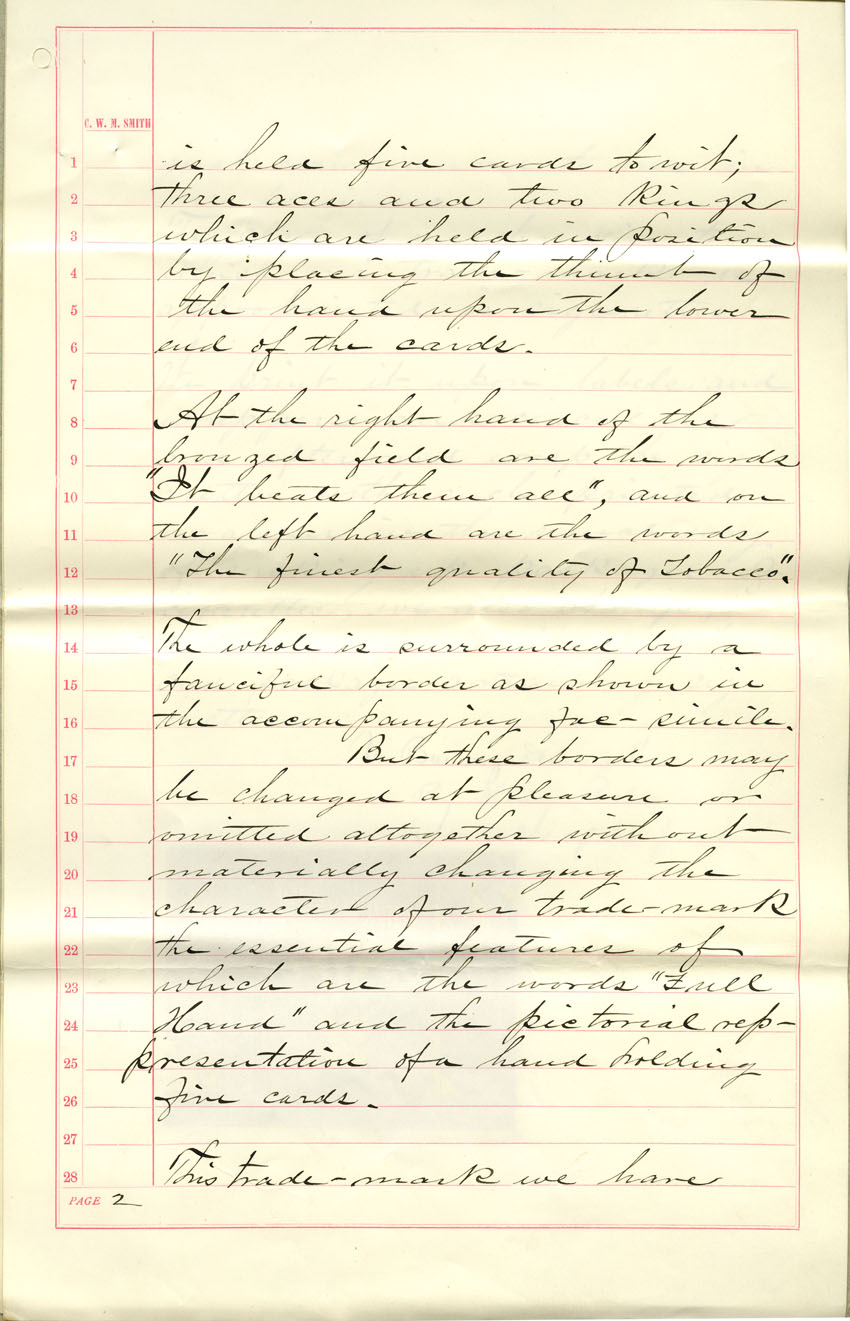 C. W. M. SMITH
1 is held five cards to wit;
2 three aces and two Kings
3 which are held in position
4 by placing the thumb of
5 the hand upon the lower
6 end of the cards.
7
8 At the right hand of the
9 bronzed field are the words
10 "It beats them all", and on
11 the left hand are the words
12 "The finest quality of Tobacco".
13
14 The whole is surrounded by a
15 fanciful border as shown in
16 the accompanying fac-simile.
17 But these borders may
18 be changed at pleasure or
19 omitted altogether without
20 materially changing the
21 character of our trade-mark
22 the essential features of
23 which are the words "Full
24 Hand" and the pictorial rep-
25 presentation of a hand holding
26 five cards.
27
28 This trade-mark we have
PAGE 2